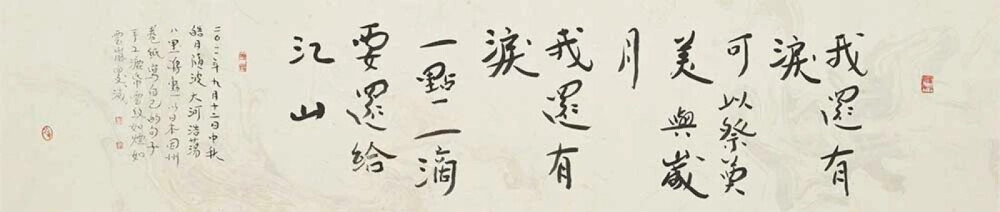 我還有
淚
可以祭奠
美與歲
月
我還有
淚
一點一滴
要還給
江山
二〇一一年九月十二日中秋
皓月隨波大河浩蕩
八里 以日本因州
卷紙寫自己的句子
手工 雲紋如煙如
雲嵐變滅